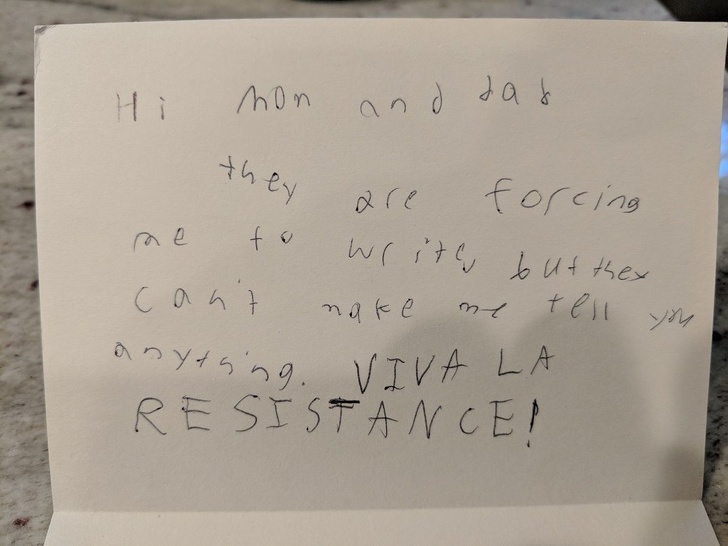 Hi mom and dad
they are forcing
me to write, but they
can't make me tell you
anything. VIVA LA
RESISTANCE!